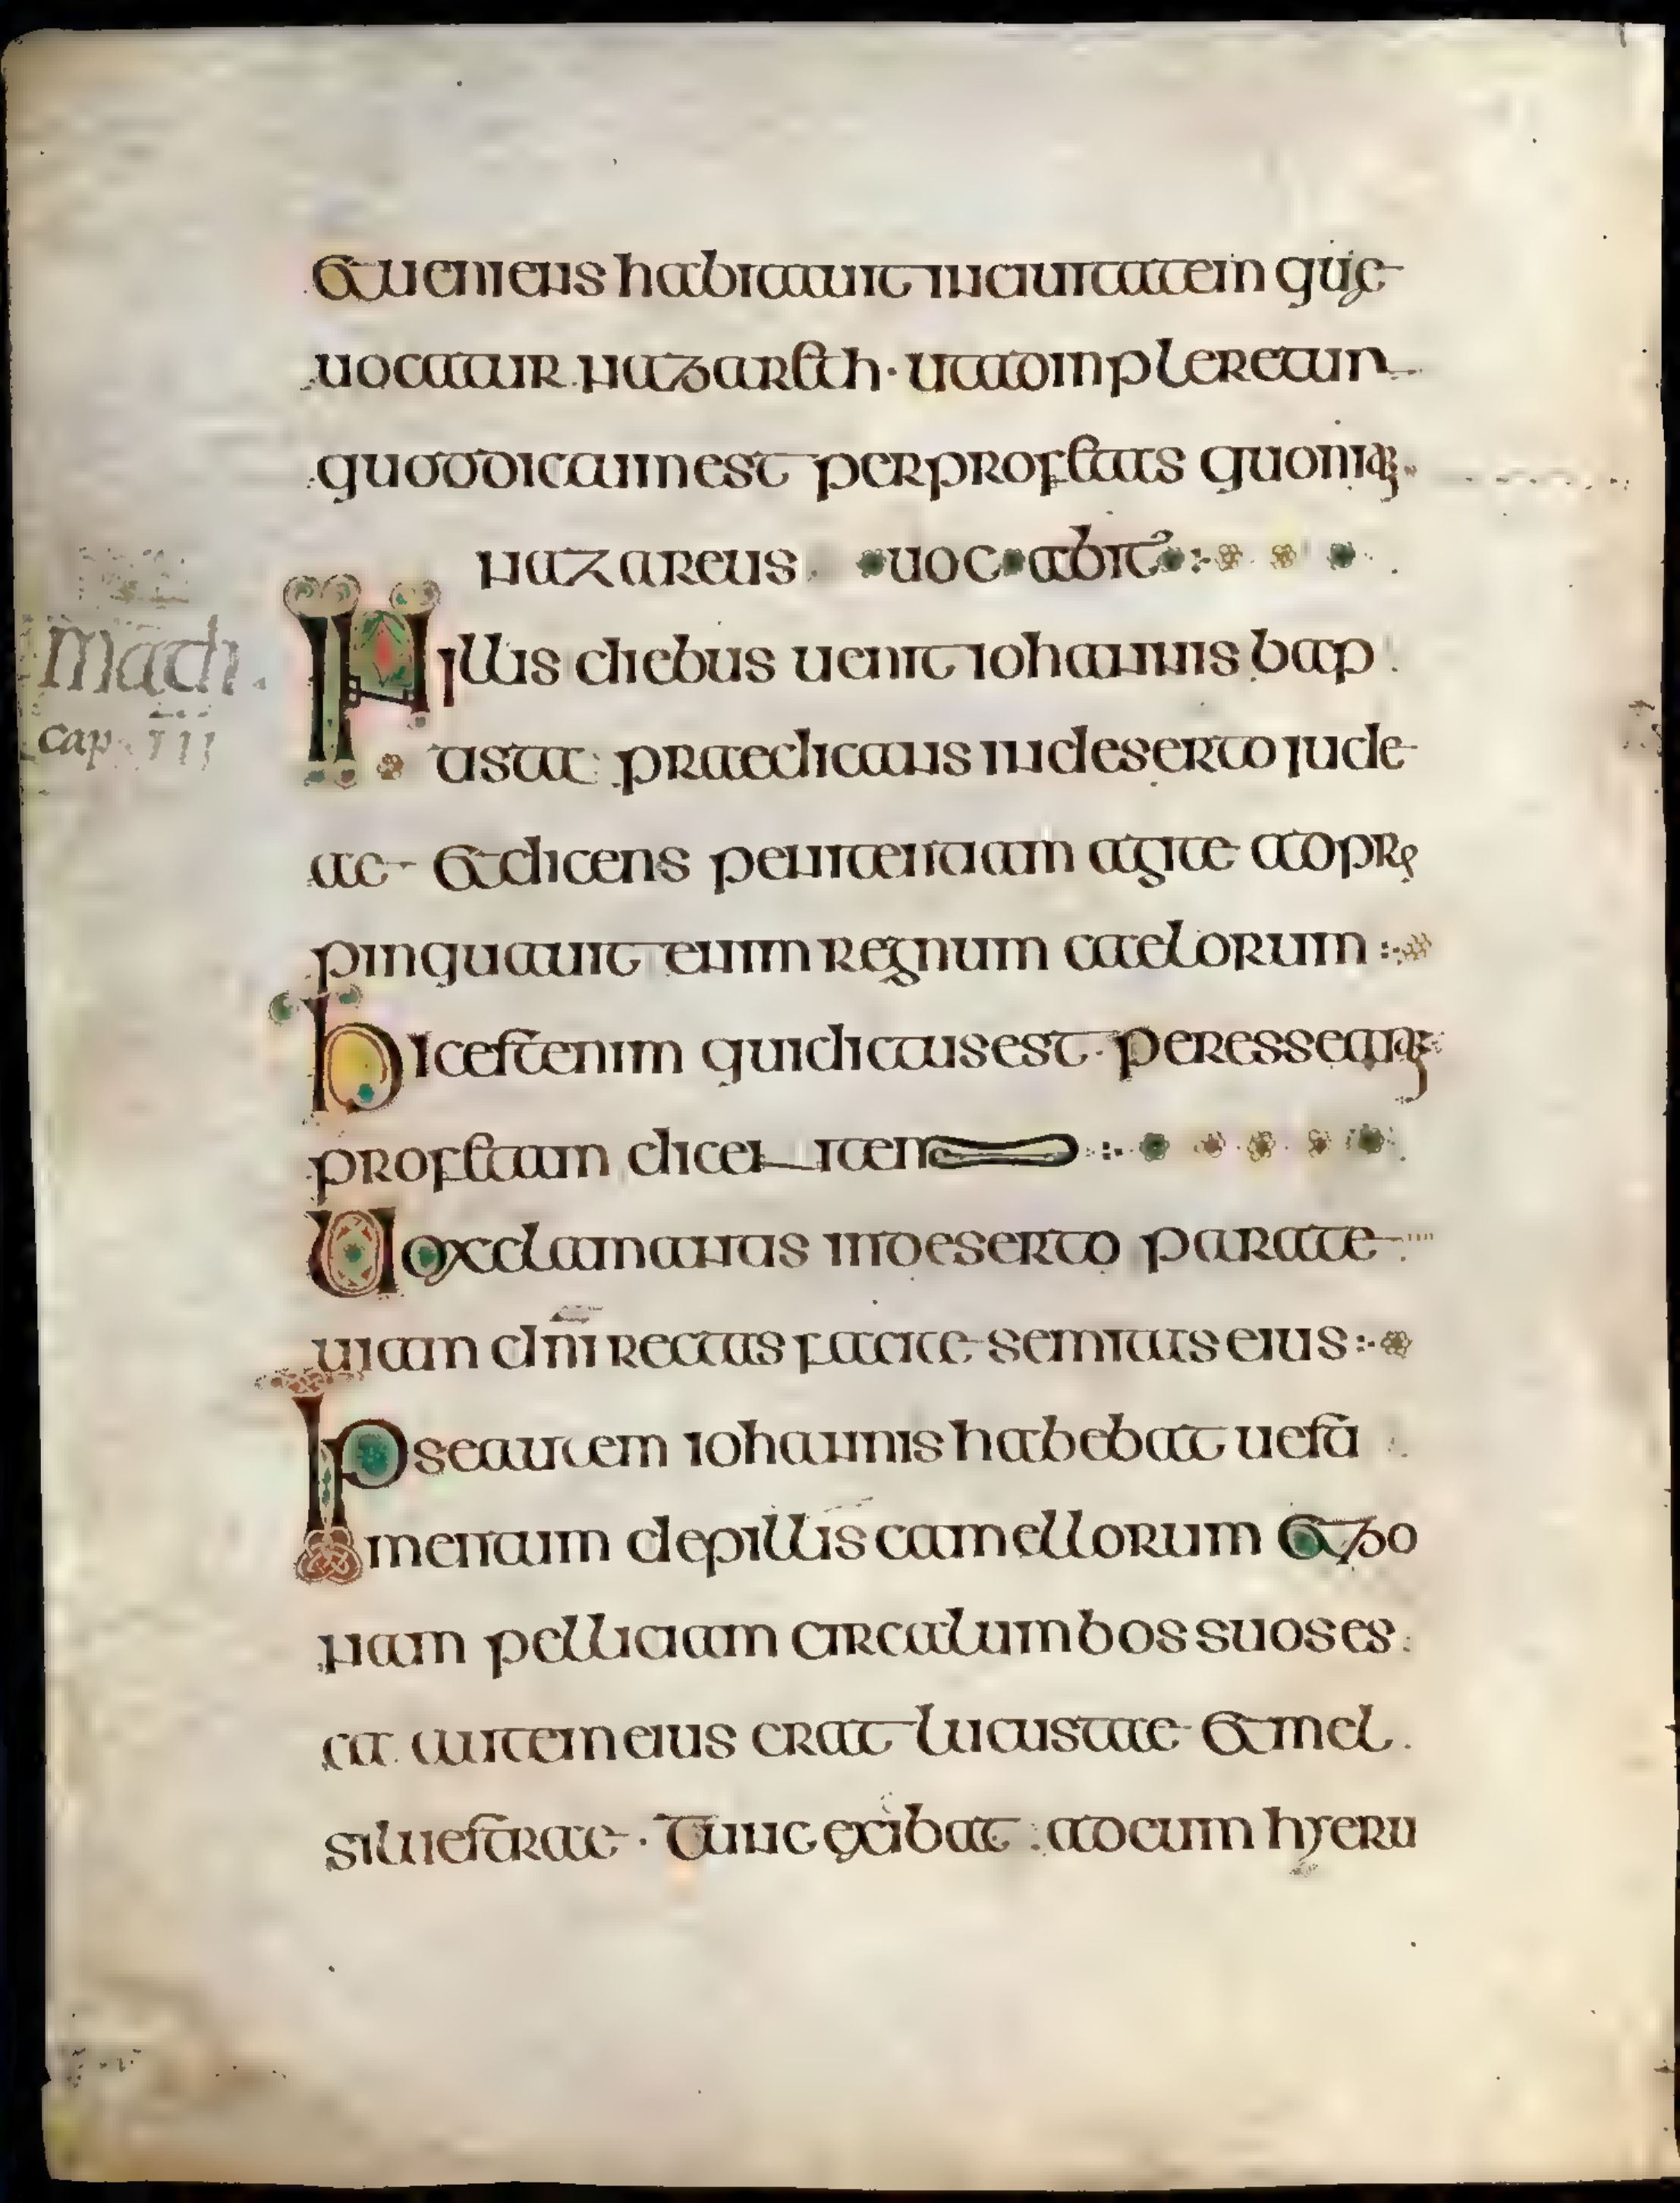 Et ueniens habitauit in ciuitatem quae
uocatur nazareth · ut adompleretur
quod dictum est per profetas quoniam
nazareus uocabit[ur]
Math.
cap. III
In illis diebus uenit iohannis bap
tista praedicans in deserto iude
ae et dicens penitentiam agite adpro
pinquauit enim regnum caelorum
Hic est enim qui dictus est per esseiam
profetam dicentem
Uox clamantis in deserto parate
uiam dn̄i rectas facite semitas eius
Ipse autem iohannis habebat uesti
mentum de pillis camellorum et zo
nam pelliciam circa lumbos suos es
ca autem eius erat lucustae et mel
siluestrae · Tunc exibat ad eum hyeru